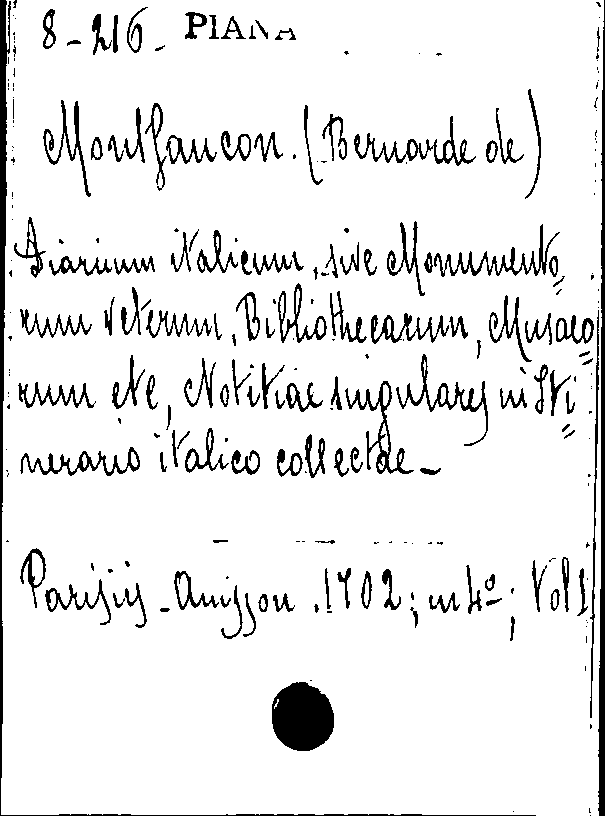 8-216- PIANA
Montfaucon. (Bernarde de)
Diarium italicum, sive Monumento=
rum veterum, Bibliothecarum, Musaeo=
rum etc, Notitiae singulares in Iti=
nerario italico collectae -
Parisiis - Anisson. 1702; in 4º; Vol 1